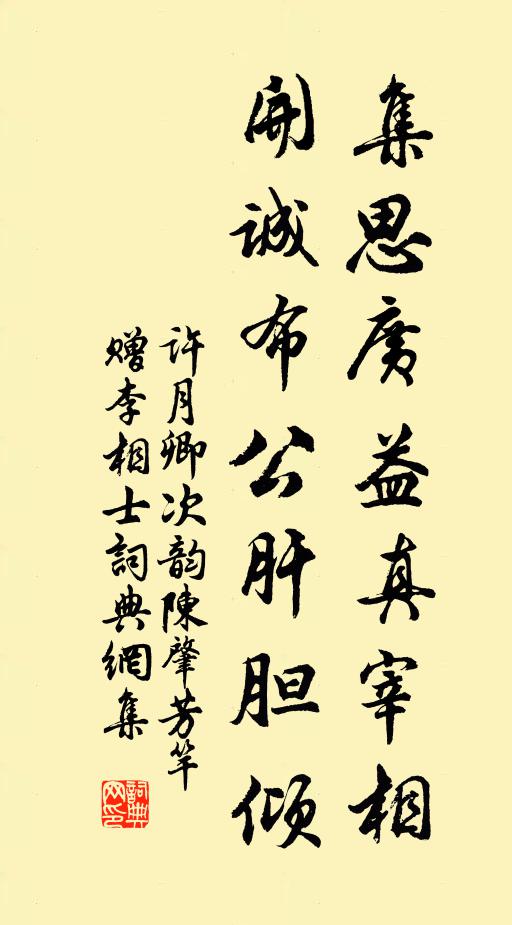 集思廣益真宰相
開誠布公肝胆傾
許月卿次韵陳肇芳竿
贈李相士詞典網集
詞典网印